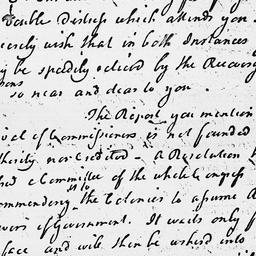 Double distress which attends you
cerely wish that in both Instances
y be speedily relieved by the Recovery
so near and dear to you.
The Report you mention
ival of Commissioners is not founded
thority nor Credited — a Resolution
the whole Congress
ommending to the Colonies to assume
wers of Government. It waits only f
face and will then be usherd into